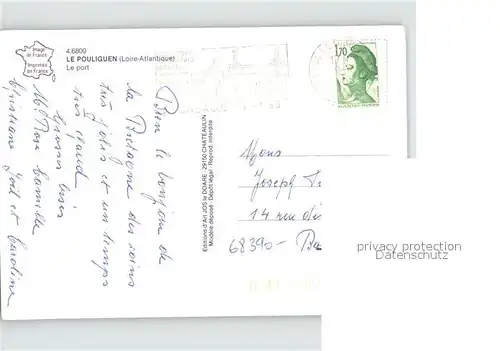 Image
de France
Imprimée
en France
4.6800
LE POULIGUEN (Loire-Atlantique)
Le port
1,70
Bien le bonjour de
la Bretagne des coins
très jolis et un temps
très chaud
Grosses bises
Mr Mme Camille
Christiane Joël et Caroline
Editions d'Art JOS le DOARE - 29150 CHATEAULIN
Modèle déposé - Dépôt légal - Reprod. interdite
Mons
Joseph
14 rue des
68390 -
privacy protection
Datenschutz